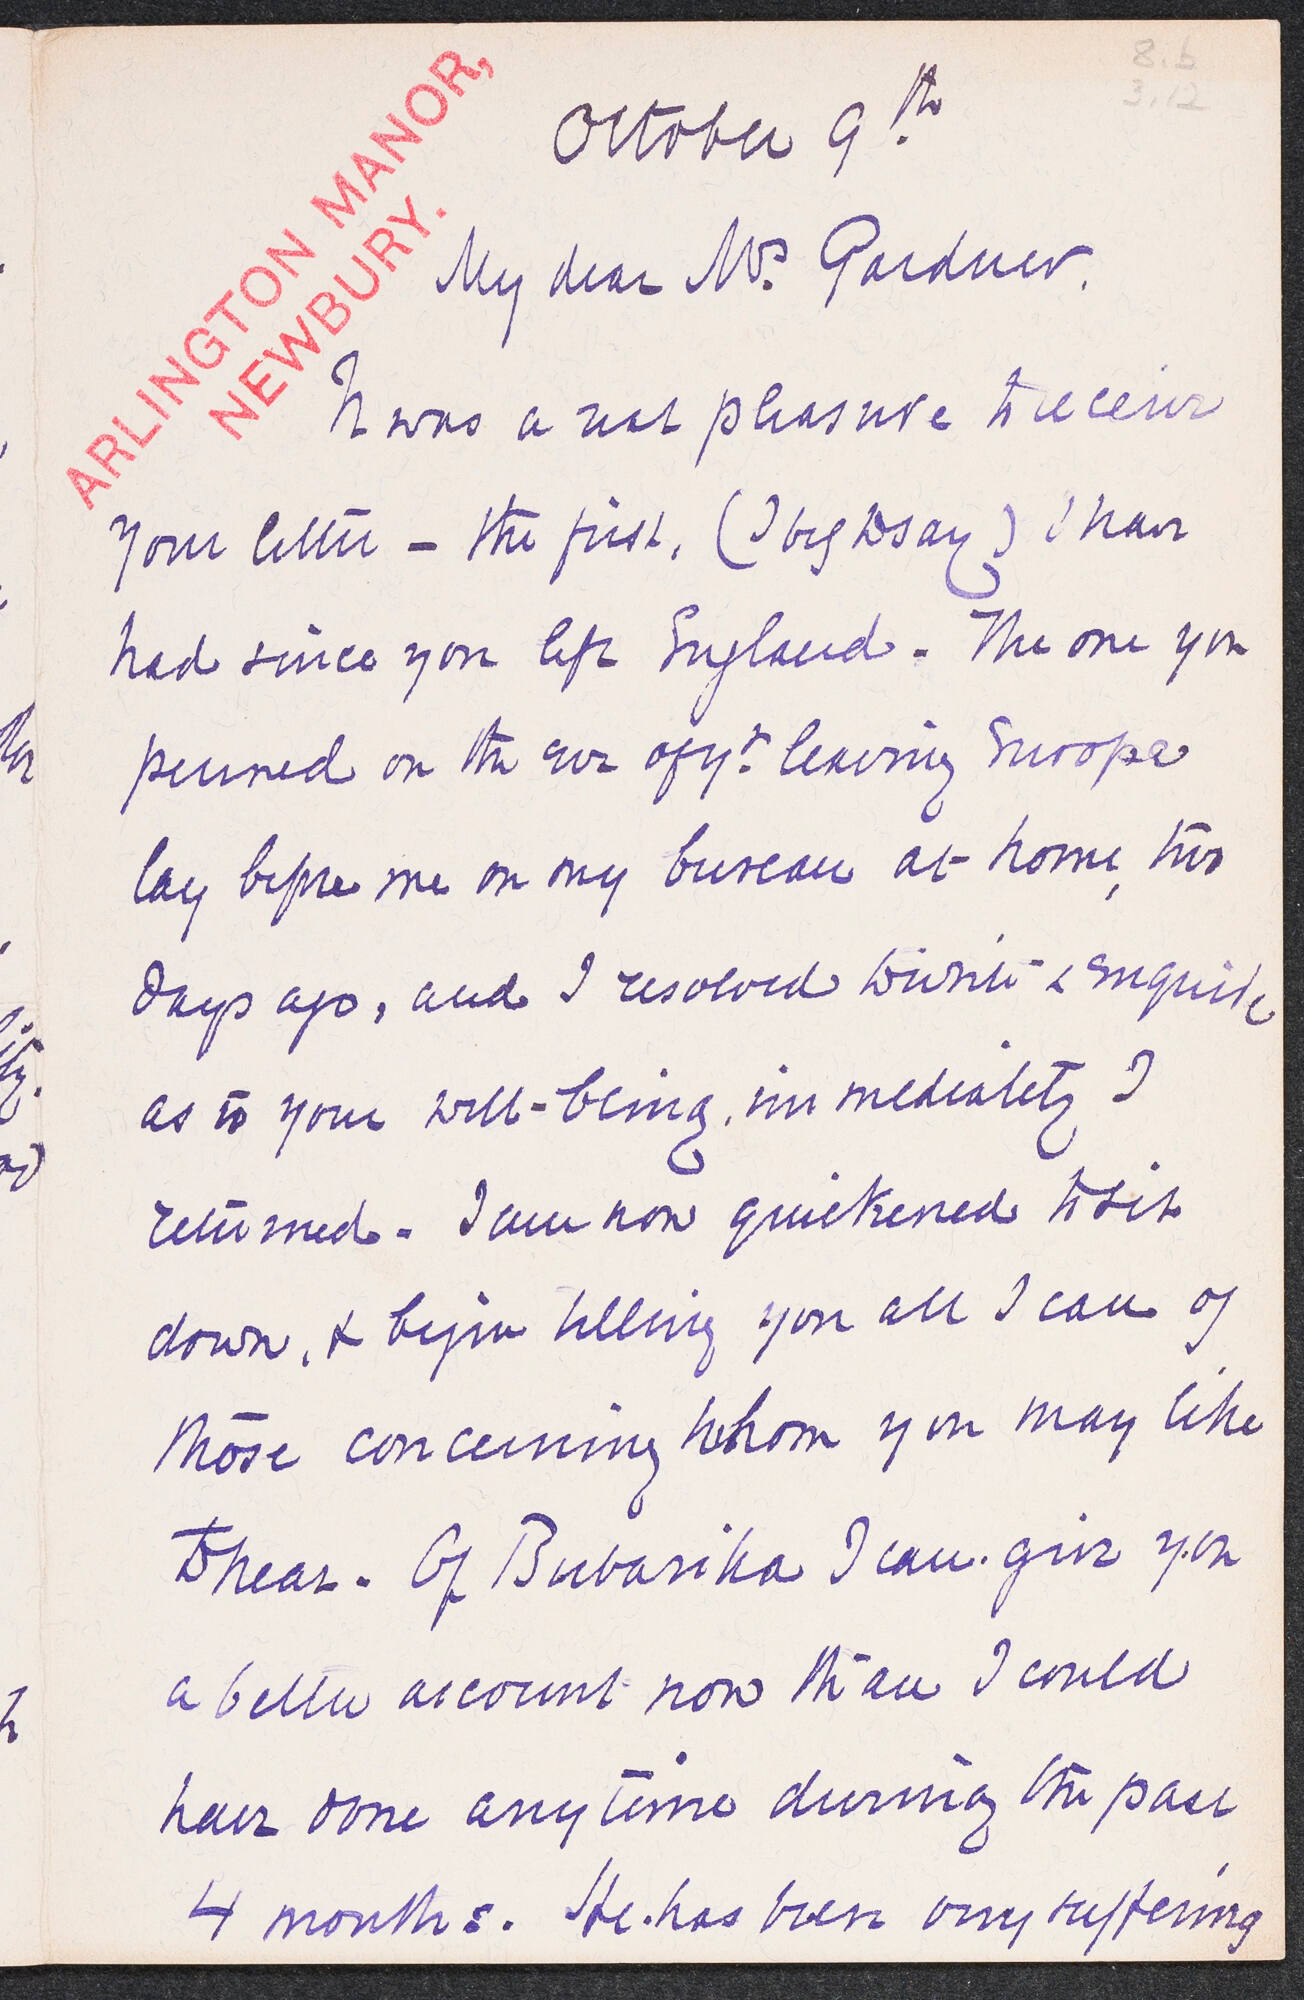 8.b
3.12
ARLINGTON MANOR,
NEWBURY.
October 9th.
My dear Mrs. Gardner.
It was a real pleasure to receive
your letter – the first, (I beg to say) I have
had since you left England. The one you
penned on the eve of yr. leaving Europe
lay before me on my bureau at home, two
days ago, and I resolved to write & enquire
as to your well-being, immediately I
returned. I am now quickened to sit
down, & begin telling you all I can of
those concerning whom you may like
to hear. Of Bubasika I can give you
a better account now than I could
have done any time during the past
4 months. He has been very suffering